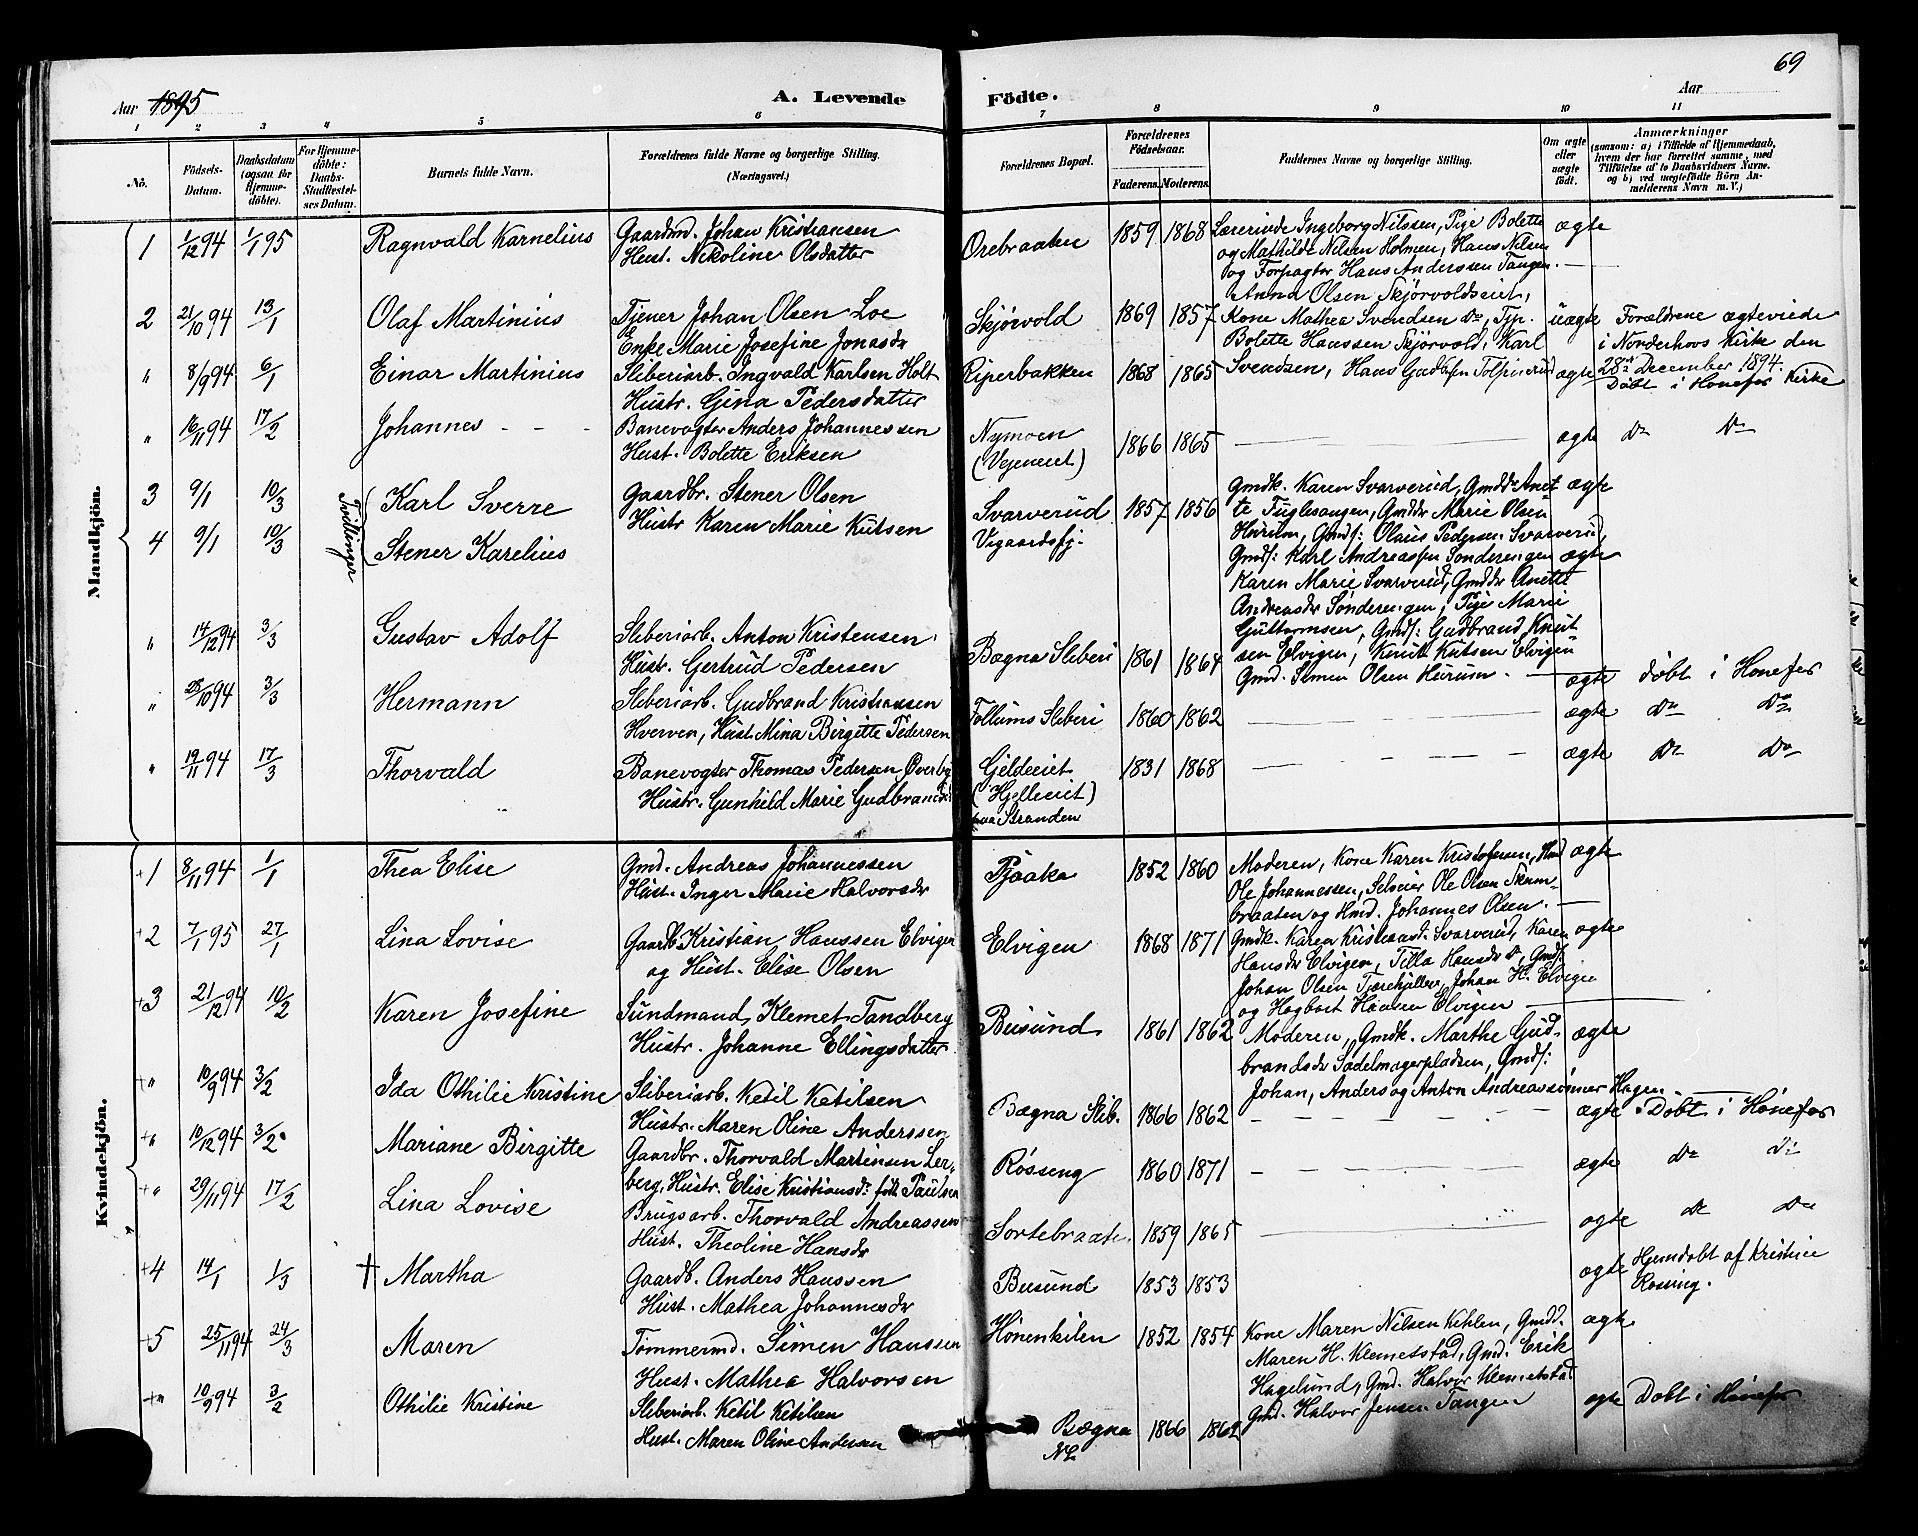 69
Aar 1895
A. Levende Födte.
Aar
1 2 3 4 5 6 7 8 9 10 11
No.
Födsels-Datum.
Daabsdatum (ogsaa för Hjemme-döbte).
For Hjemme-döbte: Daabs-Stadfæstel-ses Datum.
Barnets fulde Navn.
Forældrenes fulde Navne og borgerlige Stilling. (Næringsvei.)
Forældrenes Bopæl.
Forældrenes Födselsaar.
Faderens. Moderens.
Faddernes Navne og borgerlige Stilling.
Om ægte eller uægte födt.
Anmærkninger
(saasom: a) i Tilfælde af Hjemmedaab, hvem der har forrettet samme, med Tilföielse af to Daabsvidners Navne. og b) ved uægtefödte Börn An-melderens Navn m. V.)
Mandkjön.
1 1/12 94 1/1 95 Ragnvald Karnelius
Gaardmd. Johan Kristiansen
Hust. Nikoline Olsdatter
Orebraaten 1859 1868
Lærerinde Ingeborg Nilssen, Pige Bolette
og Mathilde Nilsen Holmen, Hans Nilsen
og Forpagter Hans Anderssen Tangen.
ægte
2 21/10 94 13/1 Olaf Martinius
Tjener Johan Olsen Loe
Enke Marie Josefine Jonasdr
Skjørvold 1869 1857
Anna Olsen Skjørvoldseiet,
Kone Mathea Svendsen do, Tjp.
Bolette Hanssen Skjørvold, Karl
Svendsen, Hans
uægte
Forældrene ægteviede
i Norderhovs Kirke den
28de December 1894.
" 8/9 94 6/1 Einar Martinius
Sliberiarb. Ingvald Karlsen Holt
Hustr. Gina Pedersdatter
Riperbakken 1868 1865 ægte Døbt i Hønefos Kirke
" 16/11 94 17/2 Johannes
Banevogter Anders Johannessen
Hust. Bolette Eriksen
Nymoen
(Vejeneiet)
1866 1865 ægte do do
3 9/1 10/3 Karl Sverre
Tvillinger
Gaardbr. Stener Olsen
Hustr Karen Marie Kutsen
Svarverud
Vegaardsfj.
1857 1856
Gmdk. Karen Svarverud, Gmdd. Anet
te Fuglesangen, Gmddr Marie Olsen
Hurum, Gmds: Olaus Pedersen Svarverud,
ægte
4 9/1 10/3 Stener Karelius
Gmds: Karl Andreassen Sonderengen
Karen Marie Svarverud, Gmddr Anette
Andreasdr Sønderengen, Pige Marie
Guttormsen, Gmds: Gudbrand Knut
sen Elvigen, Knut Kutsen Elvigen
Gmd. Simen Olsen Hurum.
ægte
" 14/12 94 3/3 Gustav Adolf
Sliberiarb. Anton Kristensen,
Hustr. Gertrud Pedersen
Bægna Sliberi 1861 1864 ægte Døbt i Hønefos
" 28/10 94 3/3 Hermann
Sliberiarb. Gudbrand Kristiansen
Hverven, Hust. Mina Birgitte Pedersen
Follums Sliberi 1860 1862 ægte do do
" 19/11 94 17/3 Thorvald
Banevogter Thomas Pedersen Overby
Hustr. Gunhild Marie Gudbrandsdr
Gjeldeeiet
(Hjelleeiet)
paa Stranden
1831 1868 ægte do do
Kvindekjön.
+1 8/11 94 1/1 Thea Elise
Gmd. Andreas Johannessen
Hust. Inger Marie Halvorsdr
Pjaaka 1852 1860
Moderen, Kone Karen Kristofersen, Hmd
Ole Johannessen, Selveier Ole Olsen Skum-
braaten og Hmd. Johannes Olsen.
ægte
+2 7/1 95 27/1 Lina Lovise
Gaardb. Kristian Hanssen Elvigen
og Hust. Elise Olsen
Elvigen 1868 1871
Gmdk. Karen Kristiansd. Svarverud, Karen
Hansdr Elvigen, Tilla Hansdr do, Gmds:
Johan Olsen Tjærehjellen, Johan H. Elvigen
og Hagbart Hansen Elvigen
ægte
+3 21/12 94 10/2 Karen Josefine
Sundmand, Klemet Tandberg
Hustr. Johanne Ellingsdatter.
Busund 1861 1862
Moderen, Gmdk. Marthe Gud-
brandsdr Sadelmagerpladsen, Gmds:
Johan, Anders og Anton Andreassønner Hagen
ægte
+" 10/9 94 3/2 Ida Othilie Kristine
Sliberiarb. Ketil Ketilsen
Hustr. Maren Oline Anderssen
Bægna Slib. 1866 1862 ægte Døbt i Hønefos
+" 10/12 94 3/2 Mariane Birgitte
Gaardbr. Thorvald Martinsen Ler-
berg, Hustr. Elise Kristiansdr født Paulsen
Røsseng 1860 1871 ægte do do
+" 29/11 94 17/2 Lina Lovise
Brugsarb. Thorvald Andreassen
Hust. Theoline Hansdr
Sortebraate. 1859 1865 ægte do do
+4 14/1 1/3 † Martha
Gaardb. Anders Hanssen
Hust. Mathea Johannesdr
Busund 1853 1853 ægte
Hjemdøbt af Kristine
Røsing.
+5 25/11 94 24/3 Maren
Tømmermd. Simen Hanssen
Hust. Mathea Halvorsen
Hønenkilen 1852 1854
Kone Maren Nilsen Kihlen, Gmdd.
Maren H. Klemetstad, Gmd. Erik
Hagelund, Gmd. Halvor Klemetstad
Gmd. Halvor Jensen Tangen
ægte
+" 10/9 94 3/2 Othilie Kristine
Sliberiarb. Ketil Ketilsen
Hust. Maren Oline Andersen
Bægna
1866 1862 ægte Døbt i Hønefos